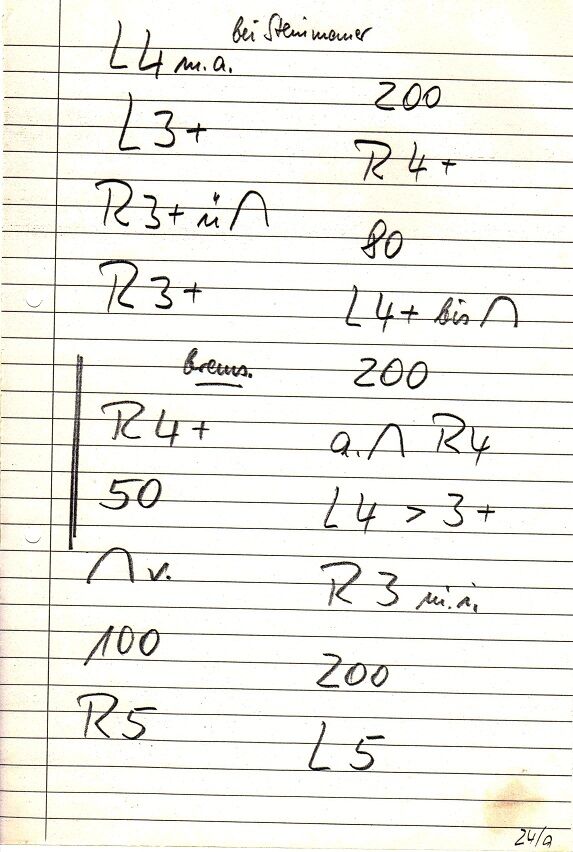 bei Steinmauer
L4 m.a.
L3+
R3+ ü ∩
R3+
brems.
R4+
50
∩ v.
100
R5
200
R4+
80
L4+ bis ∩
200
a. ∩ R4
L4 > 3+
R3 ni.ni.
200
L5
24/a